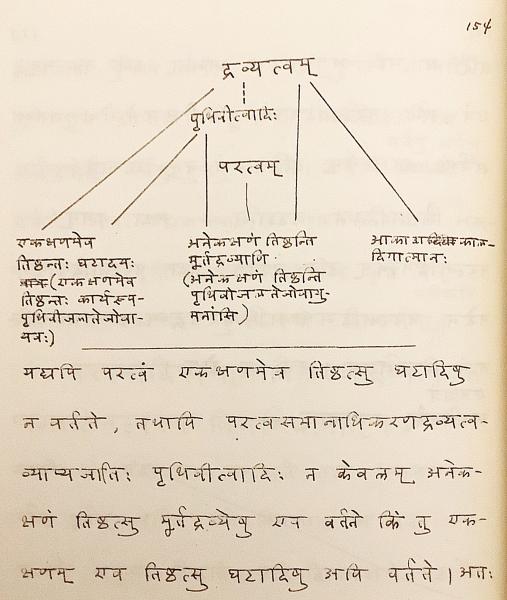 154
द्रव्यत्वम्
पृथिवीत्वादिः
परत्वम्
एकक्षणमेव
तिष्ठन्तः घटादयः
(एकक्षणमेव
तिष्ठन्तः कार्यरूप-
पृथिवीजलतेजोवा-
यवः)
अनेकक्षणं तिष्ठन्ति
मूर्तद्रव्याणि
(अनेकक्षणं तिष्ठन्ति
पृथिवीजलतेजोवायु-
मनांसि)
आकाशकाल-
दिगात्मानः
यद्यपि परत्वं एकक्षणमेव तिष्ठत्सु घटादिषु
न वर्तते, तथापि परत्वसमानाधिकरणद्रव्यत्व-
व्याप्यजातिः पृथिवीत्वादिः न केवलम् अनेक-
क्षणं तिष्ठत्सु मूर्तद्रव्येषु एव वर्तते किं तु एक-
क्षणम् एव तिष्ठत्सु घटादिषु अपि वर्तते । अतः